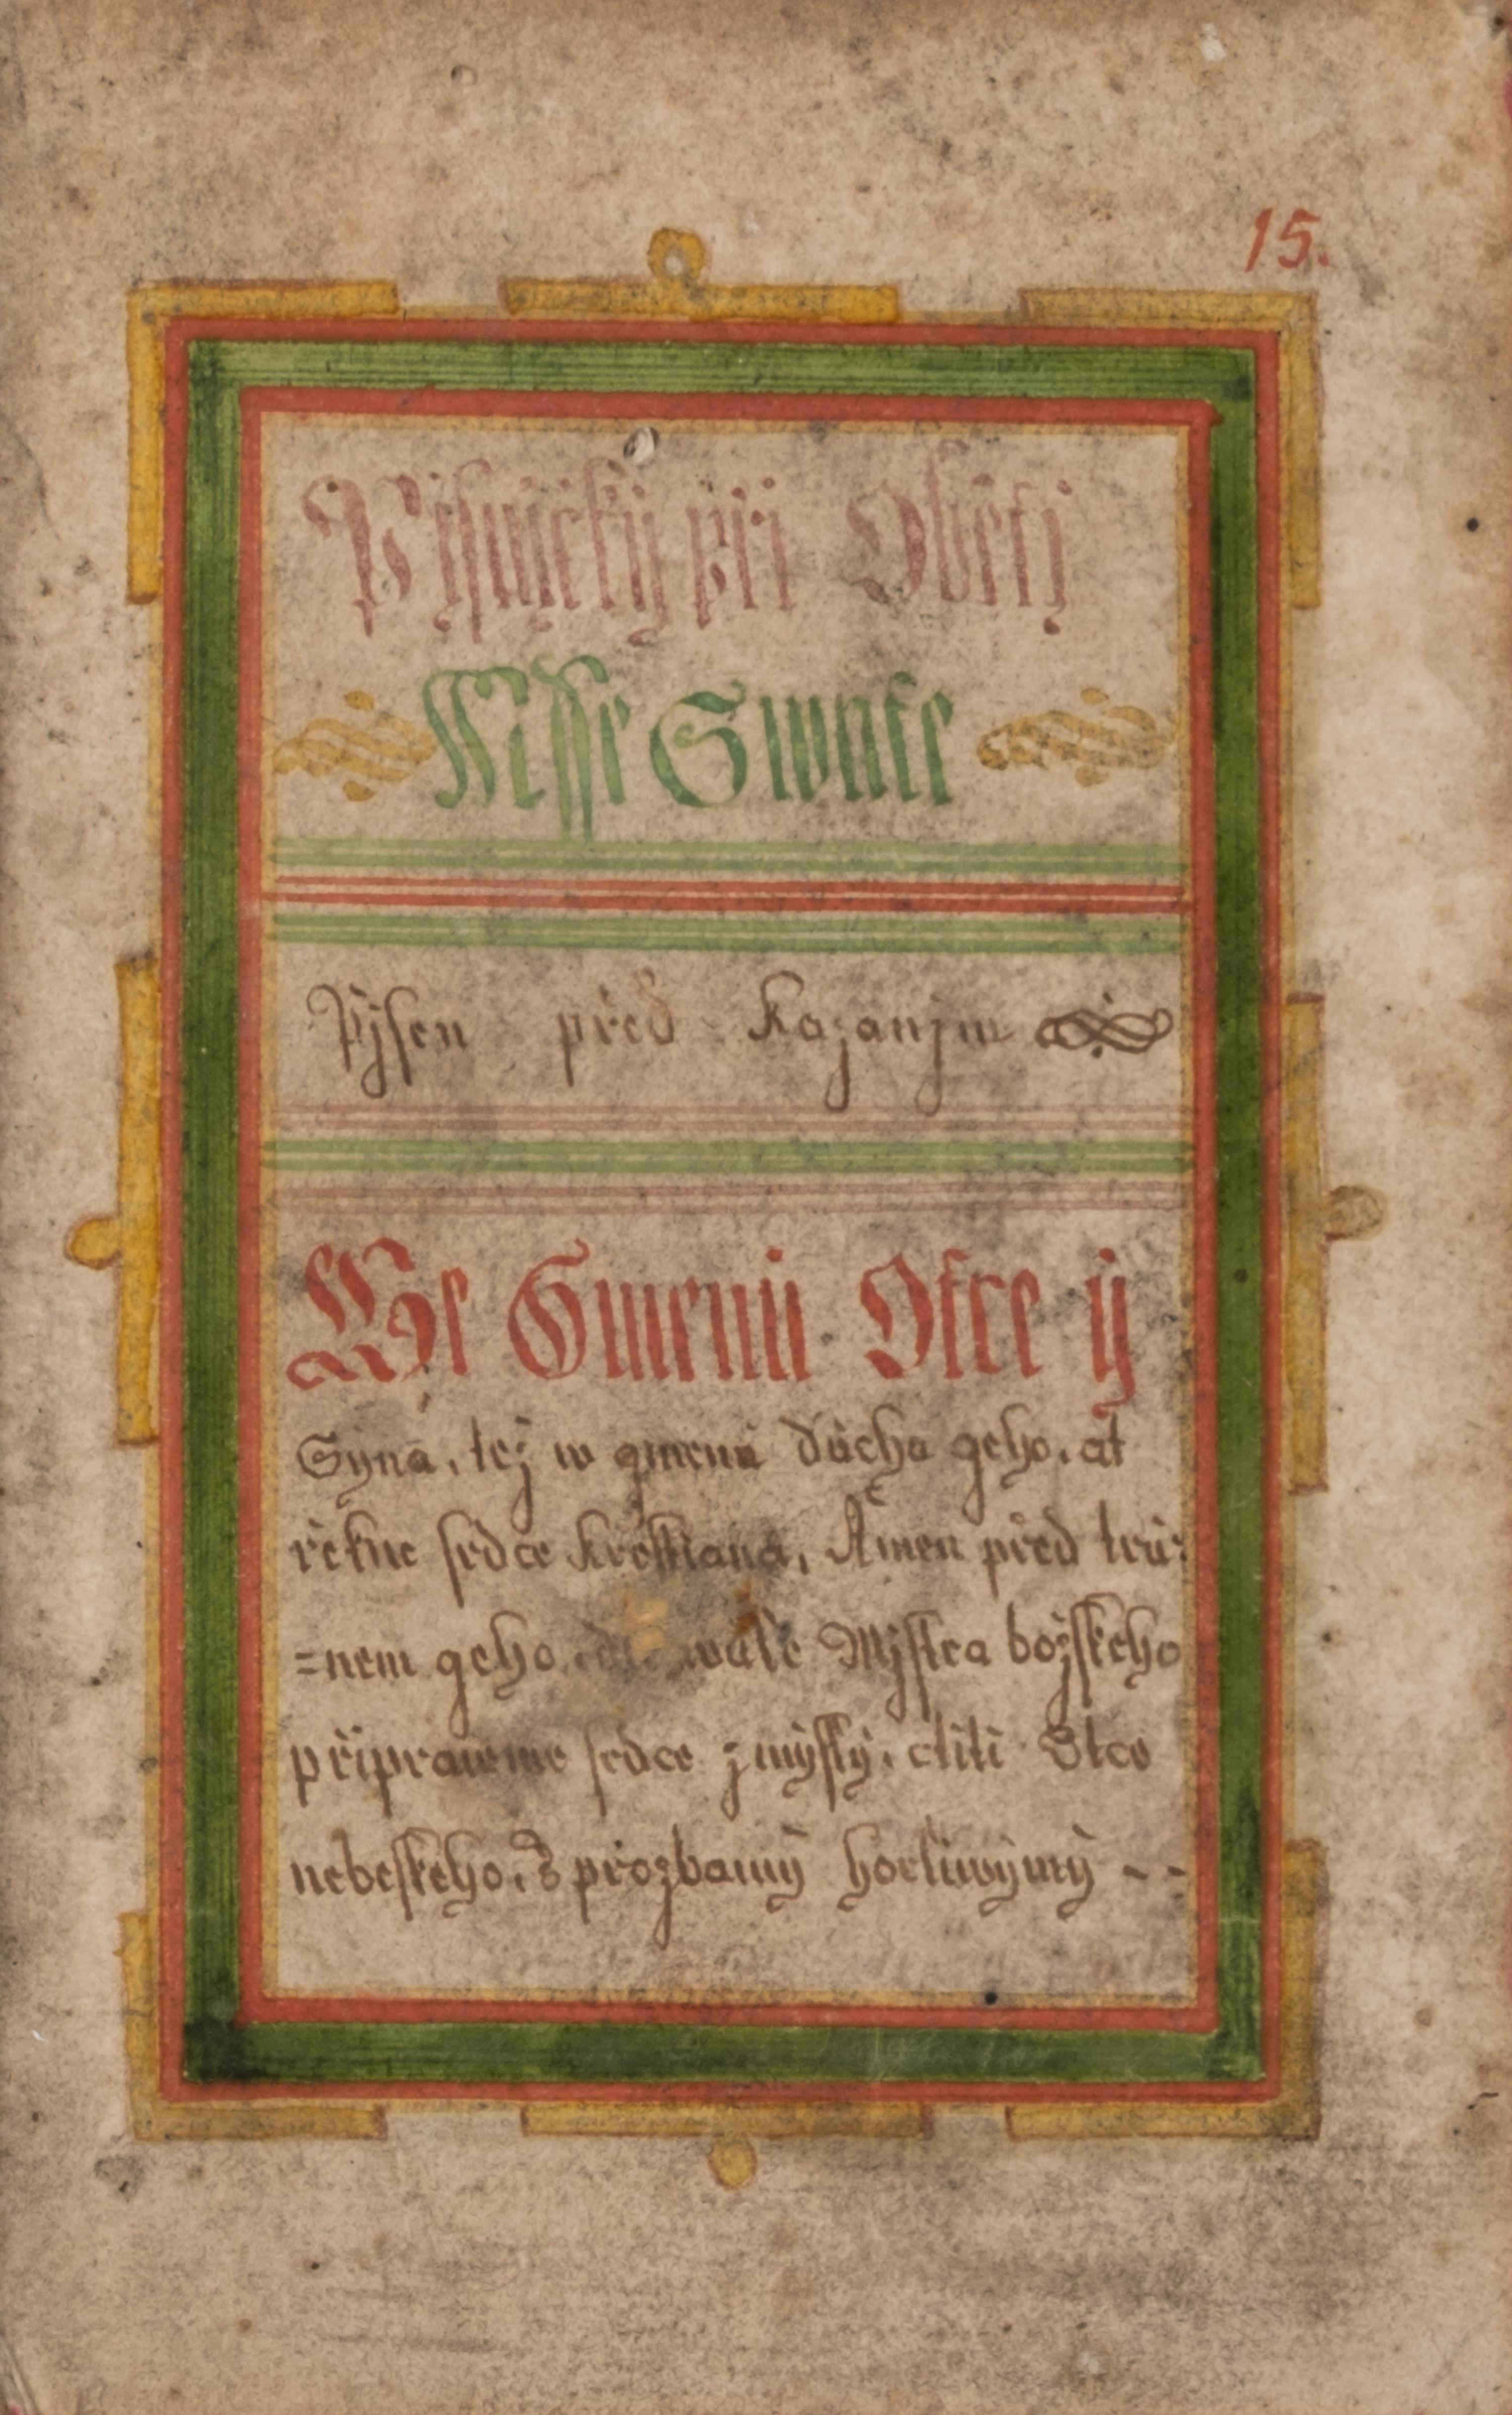 15.
Pjsnjčký při Obětj
Msse Swate
Pjsen před Kazanjm
We Gmenu Otce ÿ
Syna, tež w gmenu důcha geho, at
řekne srdce Křestiana, Amen před trů:
=nem geho, wule Mjstra božskeho
připrawme srdce zmÿslÿ, ctiti Otce
nebeskeho, s prozbamÿ horliwÿmÿ - -